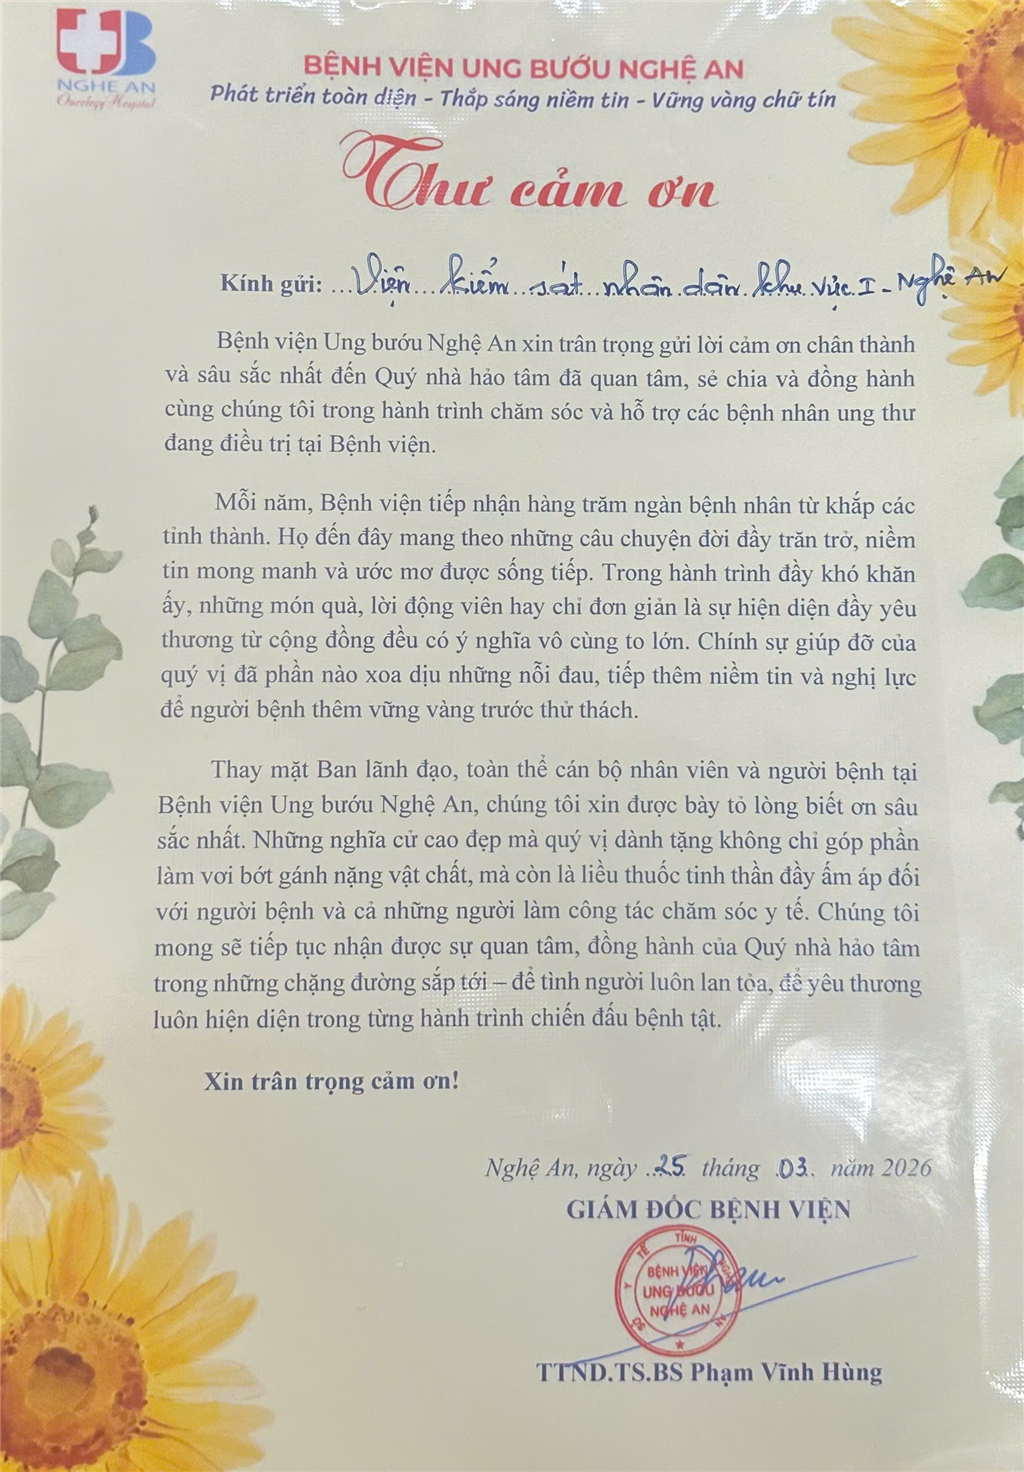 NGHE AN
Oncology Hospital
BỆNH VIỆN UNG BƯỚU NGHỆ AN
Phát triển toàn diện - Thắp sáng niềm tin - Vững vàng chữ tín
Thư cảm ơn
Kính gửi: ...Viện...kiểm..sát...nhân.dân.khu vực.I - Nghệ An
Bệnh viện Ung bướu Nghệ An xin trân trọng gửi lời cảm ơn chân thành
và sâu sắc nhất đến Quý nhà hảo tâm đã quan tâm, sẻ chia và đồng hành
cùng chúng tôi trong hành trình chăm sóc và hỗ trợ các bệnh nhân ung thư
đang điều trị tại Bệnh viện.
Mỗi năm, Bệnh viện tiếp nhận hàng trăm ngàn bệnh nhân từ khắp các
tỉnh thành. Họ đến đây mang theo những câu chuyện đời đầy trăn trở, niềm
tin mong manh và ước mơ được sống tiếp. Trong hành trình đầy khó khăn
ấy, những món quà, lời động viên hay chỉ đơn giản là sự hiện diện đầy yêu
thương từ cộng đồng đều có ý nghĩa vô cùng to lớn. Chính sự giúp đỡ của
quý vị đã phần nào xoa dịu những nỗi đau, tiếp thêm niềm tin và nghị lực
để người bệnh thêm vững vàng trước thử thách.
Thay mặt Ban lãnh đạo, toàn thể cán bộ nhân viên và người bệnh tại
Bệnh viện Ung bướu Nghệ An, chúng tôi xin được bày tỏ lòng biết ơn sâu
sắc nhất. Những nghĩa cử cao đẹp mà quý vị dành tặng không chỉ góp phần
làm vơi bớt gánh nặng vật chất, mà còn là liều thuốc tinh thần đầy ấm áp đối
với người bệnh và cả những người làm công tác chăm sóc y tế. Chúng tôi
mong sẽ tiếp tục nhận được sự quan tâm, đồng hành của Quý nhà hảo tâm
trong những chặng đường sắp tới – để tình người luôn lan tỏa, để yêu thương
luôn hiện diện trong từng hành trình chiến đấu bệnh tật.
Xin trân trọng cảm ơn!
Nghệ An, ngày ..25. tháng .03. năm 2026
GIÁM ĐỐC BỆNH VIỆN
SỞ Y TẾ TỈNH NGHỆ AN
BỆNH VIỆN
UNG BƯỚU
NGHỆ AN
TTND.TS.BS Phạm Vĩnh Hùng